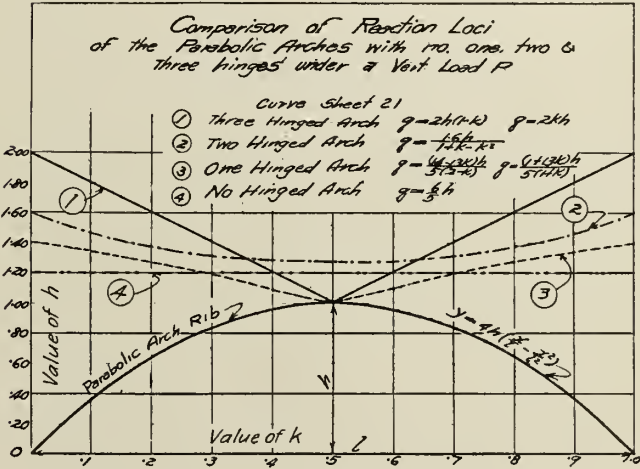 Comparison of Reaction Loci
of the Parabolic Arches with no. one. two &
Three hinges under a Vert Load P
Curve Sheet 21
① Three Hinged Arch g=2h(1-k) g=2kh
② Two Hinged Arch g=1.6h/1+k-k²
③ One Hinged Arch g= g=
④ No Hinged Arch g=6/5 h
2.00
1.80
1.60
1.40
1.20
1.00
.80
.60
.40
.20
0
Value of h
①
②
③
④
Parabolic Arch Rib
y=4h
h
Value of k
l
.1 .2 .3 .4 .5 .6 .7 .8 .9 1.0